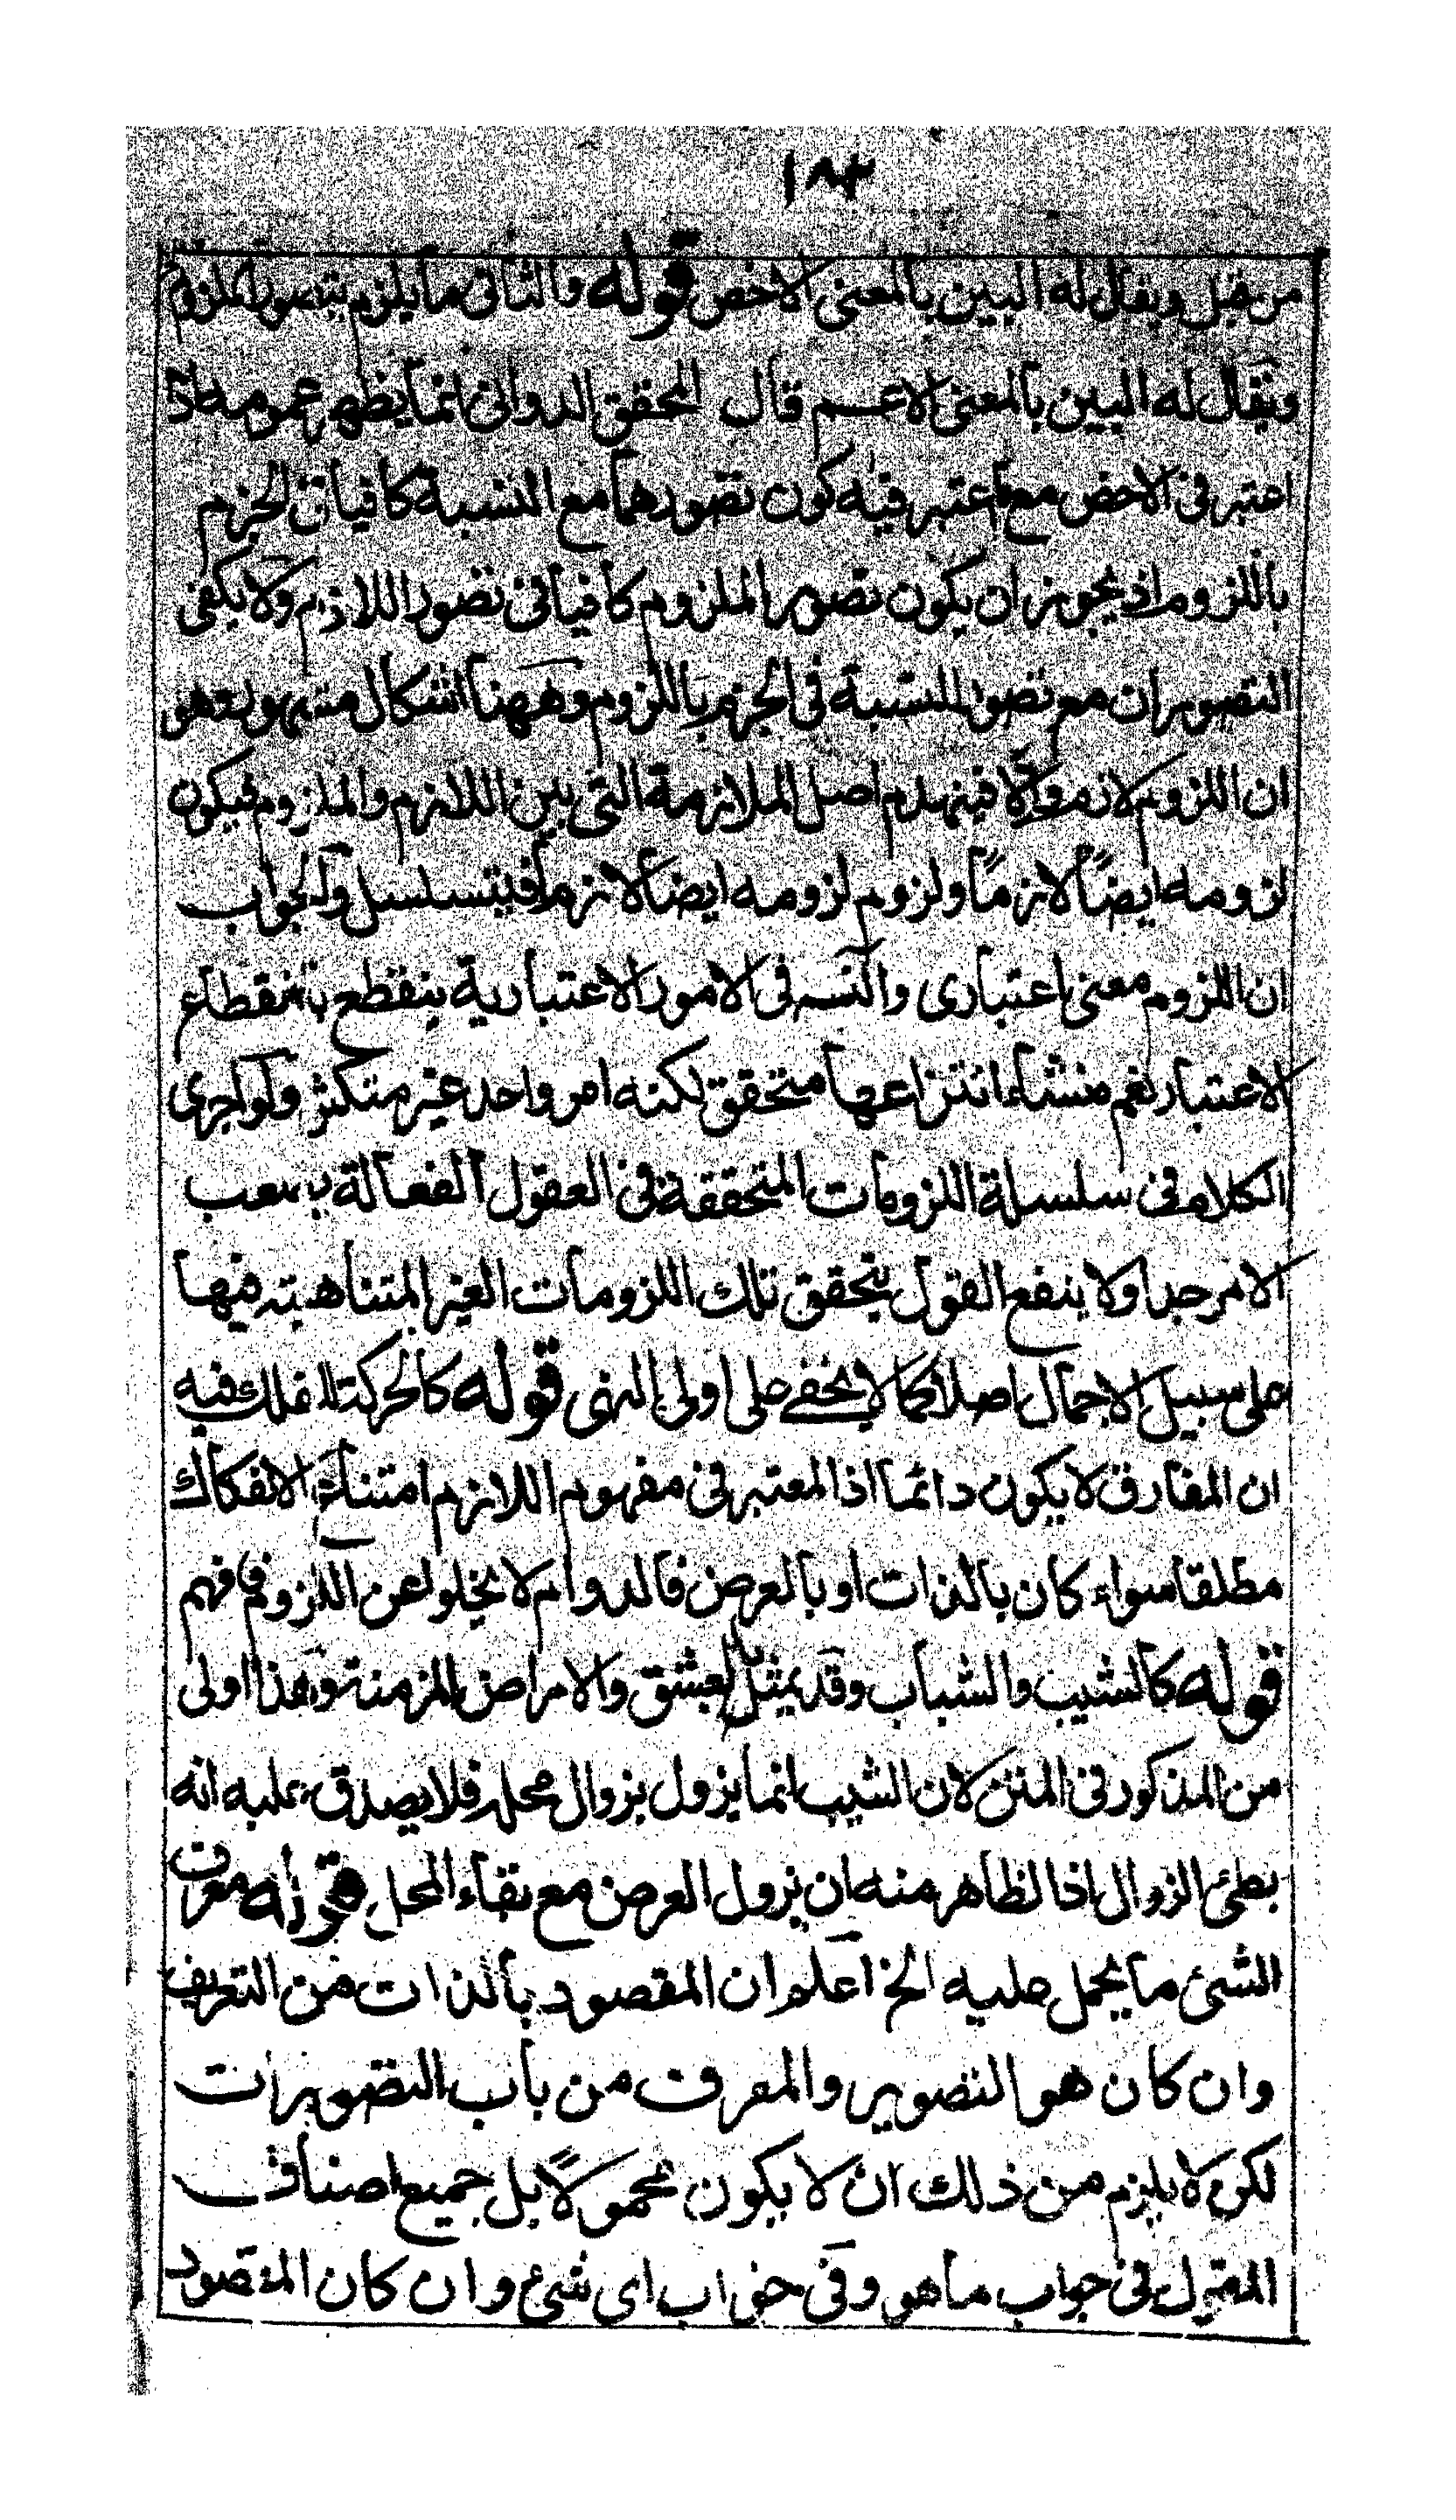 ١٨٣
من قبل ويقال له البين بالمعنى الاخص قوله والثانى ما يلزم بتصور الملزوم
ويقال له البين بالمعنى الاعم قال المحقق الدوانى انما يظهر عمومه اذا
اعتبر فى الاخص مع ما اعتبر فيه كون تصورهما مع النسبة كافيا فى الجزم
باللزوم اذ يجوز ان يكون تصور الملزوم كافيا فى تصور اللازم ولا يكفى
التصوران مع تصور النسبة فى الجزم باللزوم وههنا اشكال مشهور وهو
ان اللزوم لازم والا فينهدم اصل الملازمة التى بين اللازم والملزوم فيكون
لزومه ايضاً لازماً ولزوم لزومه ايضا لازما فيتسلسل والجواب
ان اللزوم معنى اعتبارى والتسه فى الامور الاعتبارية ينقطع بانقطاع
الاعتبار نعم منشاء انتزاعها متحقق لكنه امر واحد غير متكثر ولو اجرى
الكلام فى سلسلة اللزومات المتحققة فى العقول الفعالة يصعب
الامر جدا ولا ينفع القول بتحقق تلك اللزومات الغير المتناهية فيها
على سبيل الاجمال اصلا كما لا يخفى على اولى النهى قوله كالحركة للفلك فيه
ان المفارق لا يكون دائما اذ المعتبر فى مفهوم اللازم امتناع الانفكاك
مطلقا سواء كان بالذات او بالعرض فالدوام لا يخلو عن اللزوم فافهم
قوله كالشيب والشباب وقد يمثل بالعشق والامراض المزمنة وهذا اولى
من المذكور فى المتن لان الشيب انما يزول بزوال محله فلا يصدق عليه انه
بطئ الزوال اذ الظاهر منه ان يزول العرض مع بقاء المحل قوله معرف
الشئ ما يحمل عليه الخ اعلم ان المقصود بالذات من التعريف
وان كان هو التصوير والمعرف من باب التصورات
لكن لا يلزم من ذلك ان لا يكون محمولاً بل جميع اصناف
المقول فى جواب ما هو وفى جواب اى شئ وان كان المقصود